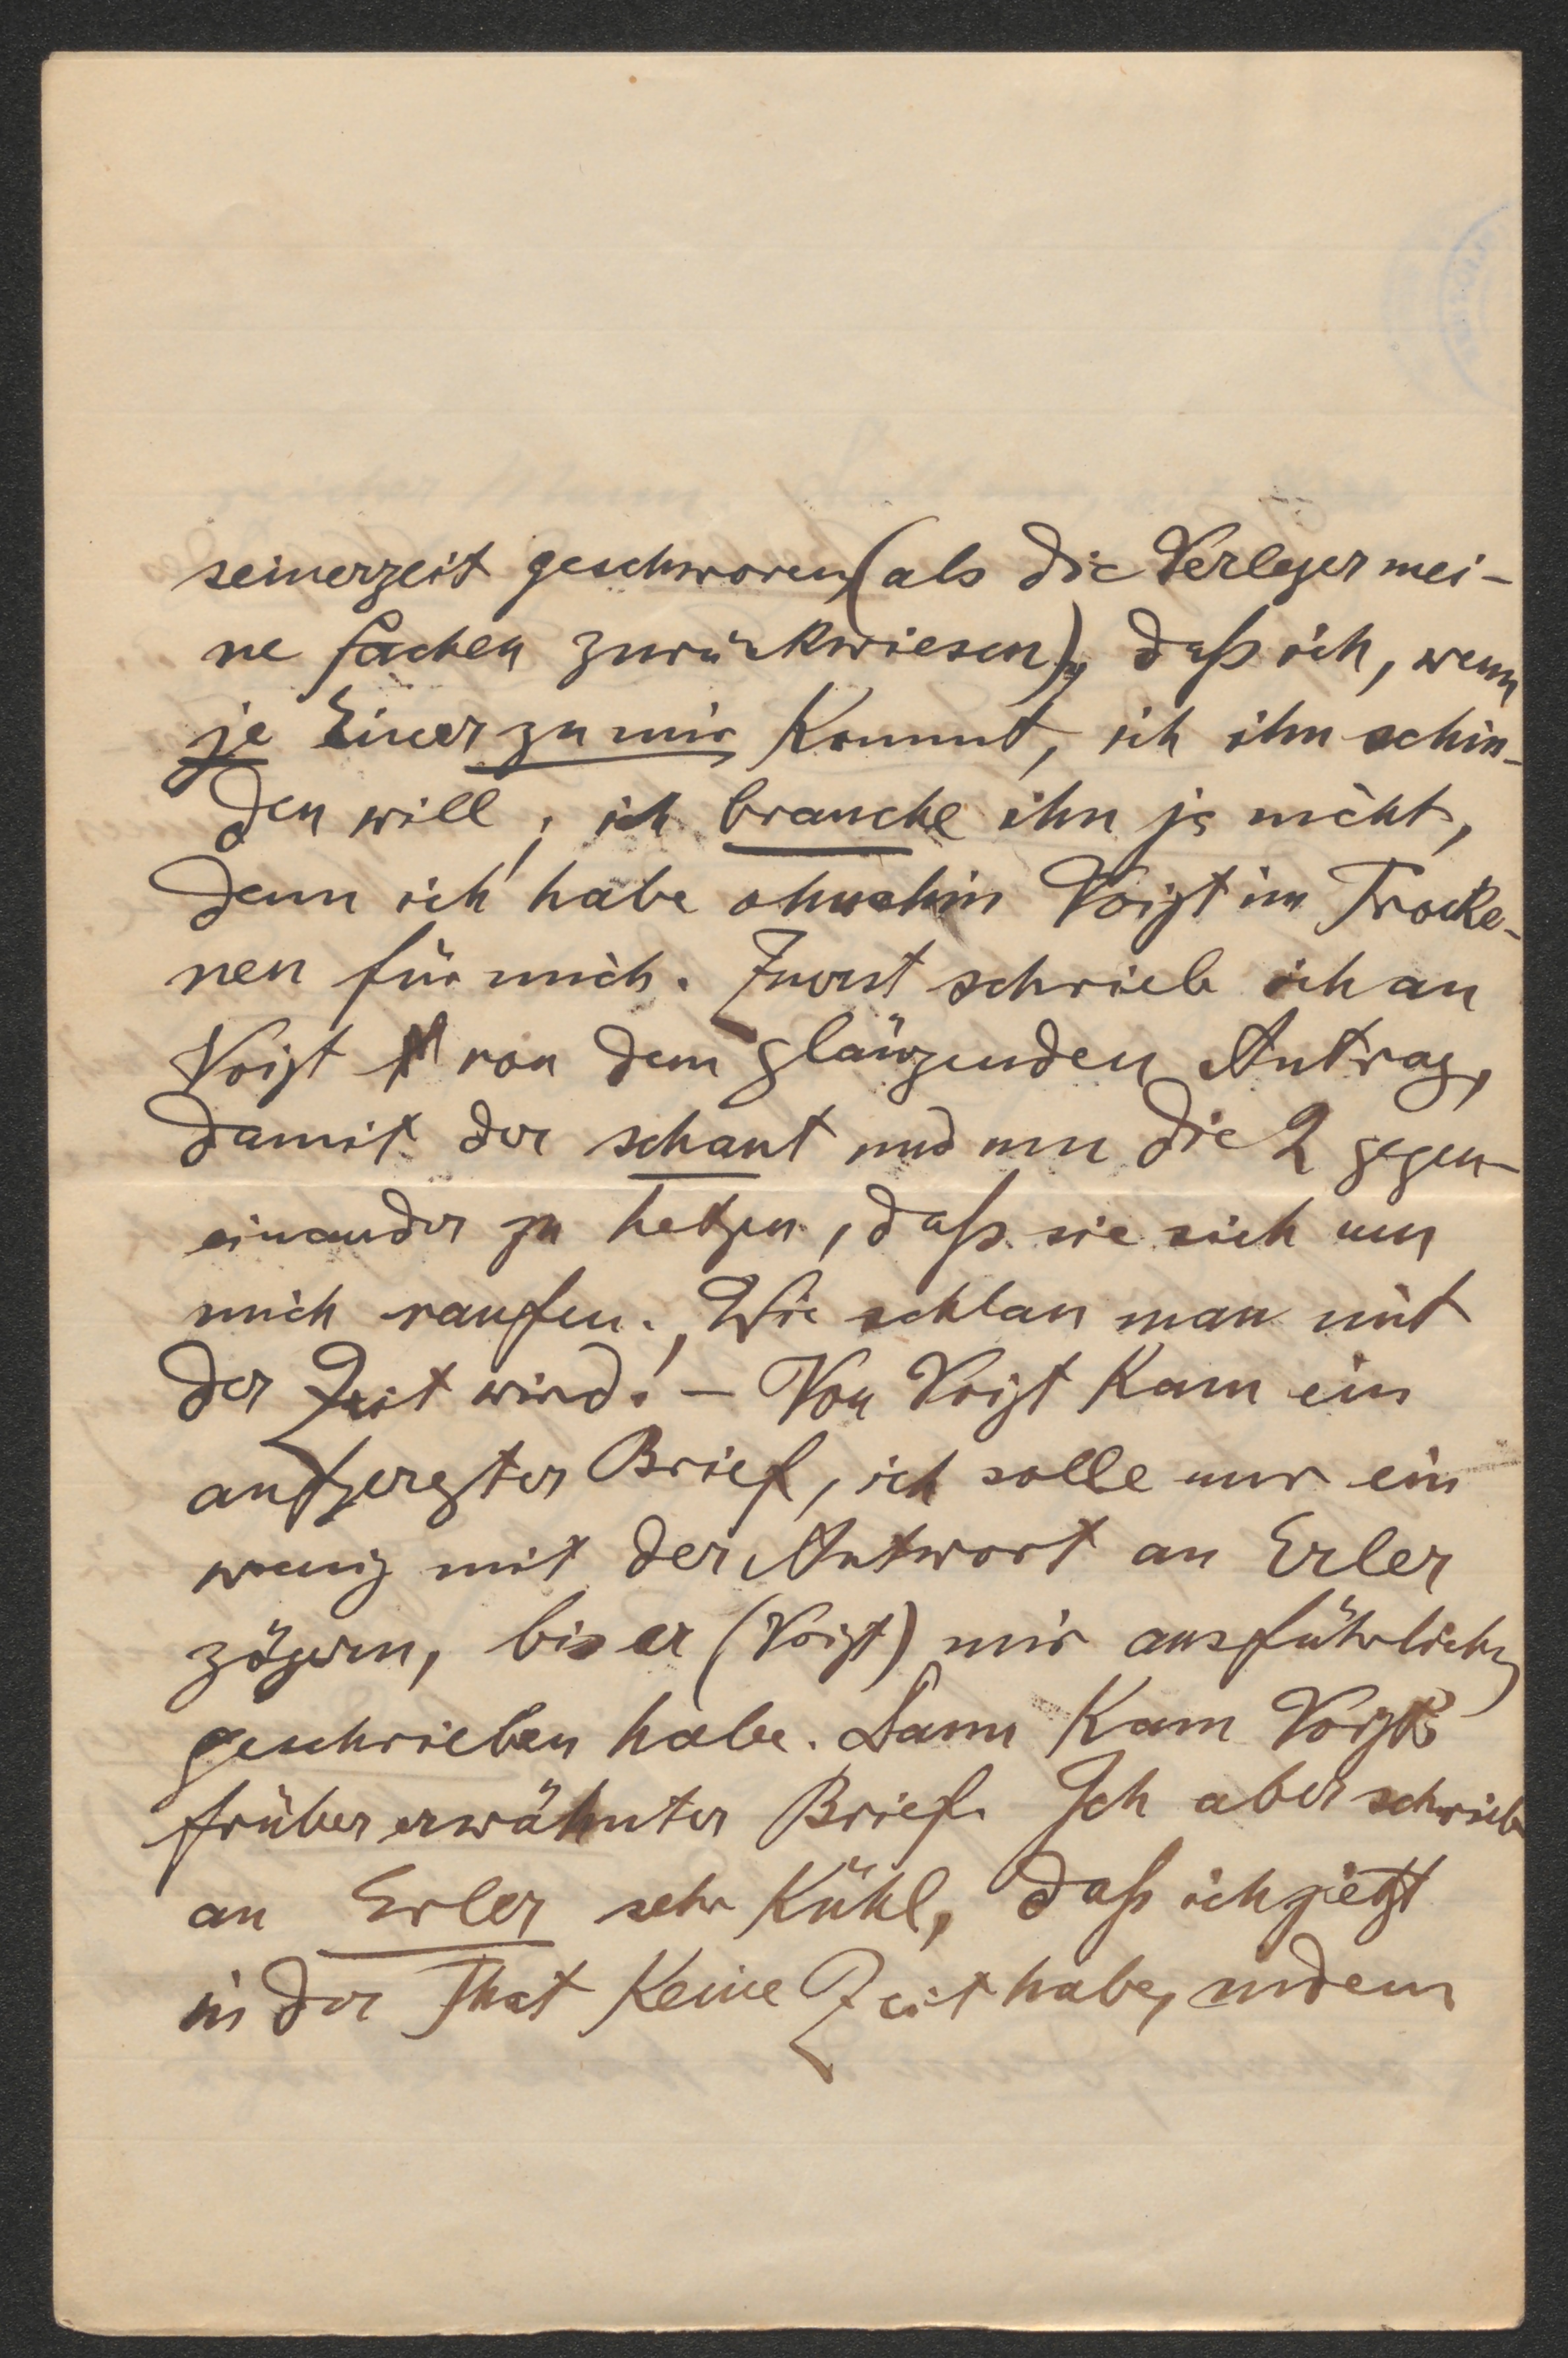 seinerzeit geschworen (als die Verleger mei-
ne Sachen zurückwiesen), daß ich, wenn
je Einer zu mir kommt, ich ihn schin-
den will, ich brauche ihn ja nicht,
denn ich habe ohnehin Voigt im Trocke-
nen für mich. Zuerst schrieb ich an
Voigt von dem glänzenden Antrag,
damit der schaut und um die 2 gegen-
einander zu hetzen, daß sie sich um
mich raufen. Wie schlau man mit
der Zeit wird! – Von Voigt kam ein
aufgeregter Brief, ich solle nur ein
wenig mit der Antwort an Erler
zögern, bis er (Voigt) mir ausführlich
geschrieben habe. Dann kam Voigts
früher erwähnter Brief. Ich aber schrieb
an Erler sehr kühl, daß ich jetzt
in der That keine Zeit habe, indem